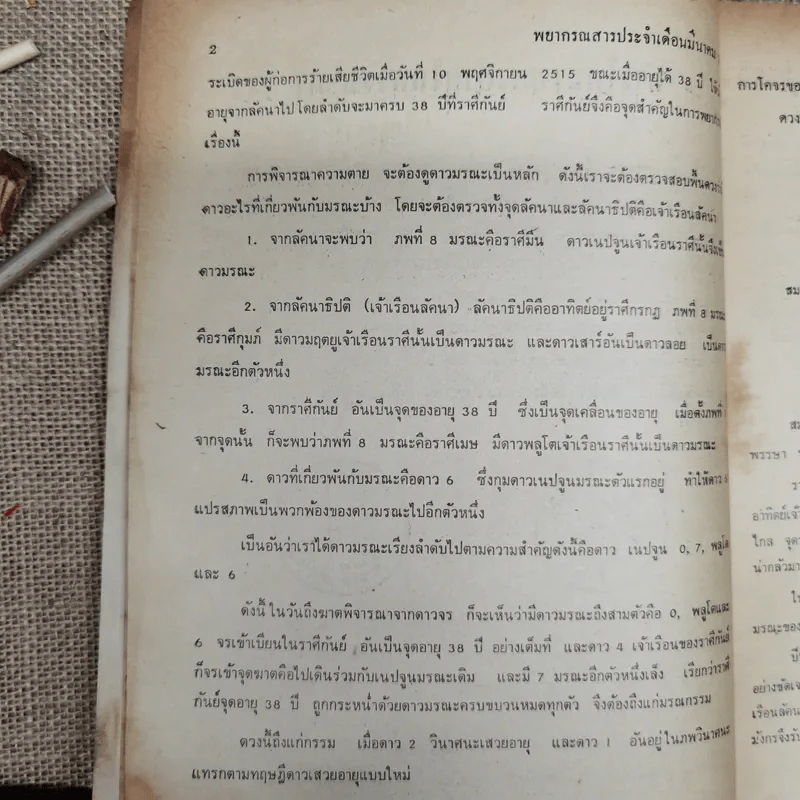 2
พยากรณสารประจำเดือนมีนาคม
ระเบิดของผู้ก่อการร้ายเสียชีวิตเมื่อวันที่ 10 พฤศจิกายน 2515 ขณะเมื่ออายุได้ 38 ปี
อายุจากลัคนาไป โดยลำดับจะมาครบ 38 ปีที่ราศีกันย์ ราศีกันย์จึงคือจุดสำคัญในการพยากรณ์
เรื่องนี้
การพิจารณาความตาย จะต้องดูดาวมรณะเป็นหลัก ดังนี้เราจะต้องตรวจสอบพื้นดวงว่า
ดาวอะไรที่เกี่ยวพันกับมรณะบ้าง โดยจะต้องตรวจทั้งจุดลัคนาและลัคนาธิปติคือเจ้าเรือนลัคนา
1. จากลัคนาจะพบว่า ภพที่ 8 มรณะคือราศีมีน ดาวเนปจูนเจ้าเรือนราศีนั้นจึงเป็น
ดาวมรณะ
2. จากลัคนาธิปติ (เจ้าเรือนลัคนา) ลัคนาธิปติคืออาทิตย์อยู่ราศีกรกฎ ภพที่ 8 มรณะ
คือราศีกุมภ์ มีดาวมฤตยูเจ้าเรือนราศีนั้นเป็นดาวมรณะ และดาวเสาร์อันเป็นดาวลอย เป็นดาว
มรณะอีกตัวหนึ่ง
3. จากราศีกันย์ อันเป็นจุดของอายุ 38 ปี ซึ่งเป็นจุดเคลื่อนของอายุ เมื่อตั้งภพที่ 1
จากจุดนั้น ก็จะพบว่าภพที่ 8 มรณะคือราศีเมษ มีดาวพลูโตเจ้าเรือนราศีนั้นเป็นดาวมรณะ
4. ดาวที่เกี่ยวพันกับมรณะคือดาว 6 ซึ่งกุมดาวเนปจูนมรณะตัวแรกอยู่ ทำให้ดาว 6
แปรสภาพเป็นพวกพ้องของดาวมรณะไปอีกตัวหนึ่ง
เป็นอันว่าเราได้ดาวมรณะเรียงลำดับไปตามความสำคัญดังนี้คือดาว เนปจูน 0, 7, พลูโต
และ 6
ดังนี้ ในวันถึงฆาตพิจารณาจากดาวจร ก็จะเห็นว่ามีดาวมรณะถึงสามตัวคือ 0, พลูโตและ
6 จรเข้าเบียนในราศีกันย์ อันเป็นจุดอายุ 38 ปี อย่างเต็มที่ และดาว 4 เจ้าเรือนของราศีกันย์
ก็จรเข้าจุดฆาตคือไปเดินร่วมกับเนปจูนมรณะเดิม และมี 7 มรณะอีกตัวหนึ่งเล็ง เรียกว่าราศี
กันย์จุดอายุ 38 ปี ถูกกระหน่ำด้วยดาวมรณะครบขบวนหมดทุกตัว จึงต้องถึงแก่มรณกรรม
ดวงนี้ถึงแก่กรรม เมื่อดาว 2 วินาศนะเสวยอายุ และดาว 1 อันอยู่ในภพวินาศนะ
แทรกตามทฤษฎีดาวเสวยอายุแบบใหม่
การโคจรขอ
ดวง
สม
สม
พรรษา
รา
อาทิตย์เจ้
ไกล จุดา
น่ากลัวมา
ใน
มรณะของ
ปี
อย่างชัดเจ
เรือนลัคน
มังกรจึงรับ